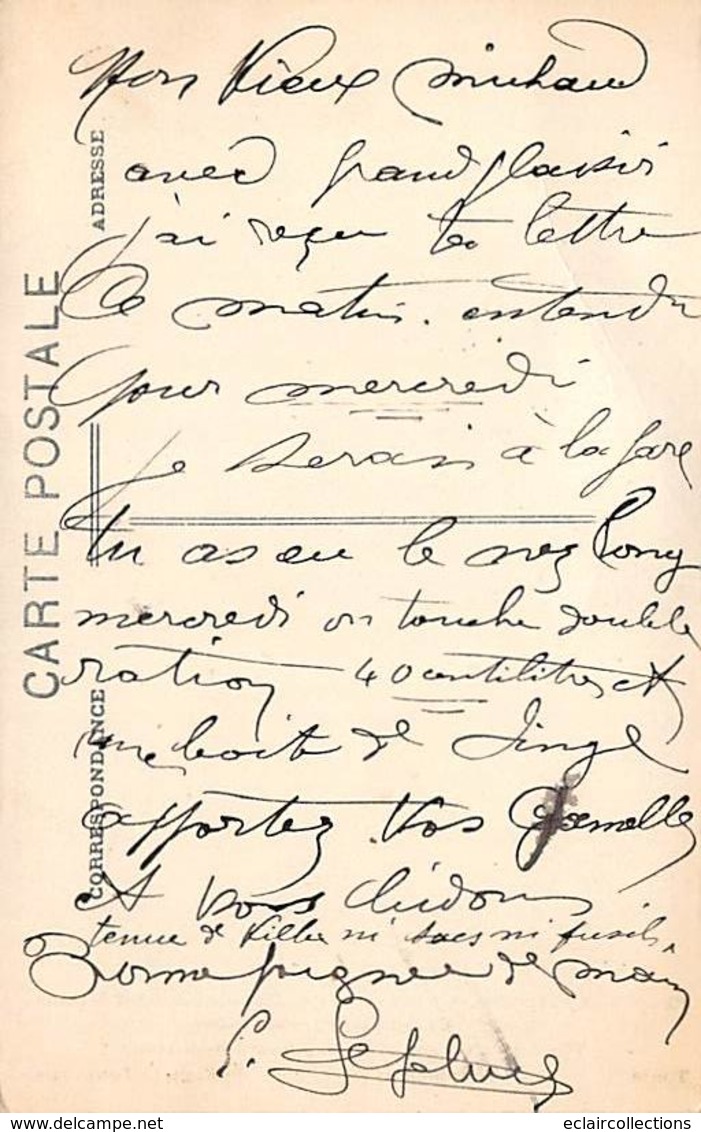 Mon Vieux Michaud
avec grand plaisir
j'ai reçu ta lettre
Ce matin. entendu
pour mercredi
je serais à la gare
Tu as eu le nez long
mercredi on touche double
ration 40 centilitres et
une boite de Singe
apportez vos Gamelles
et vos bidons
tenue de Ville ni sacs ni fusils
Bonne poignée de main
CARTE POSTALE
ADRESSE
CORRESPONDANCE
eclaircollections